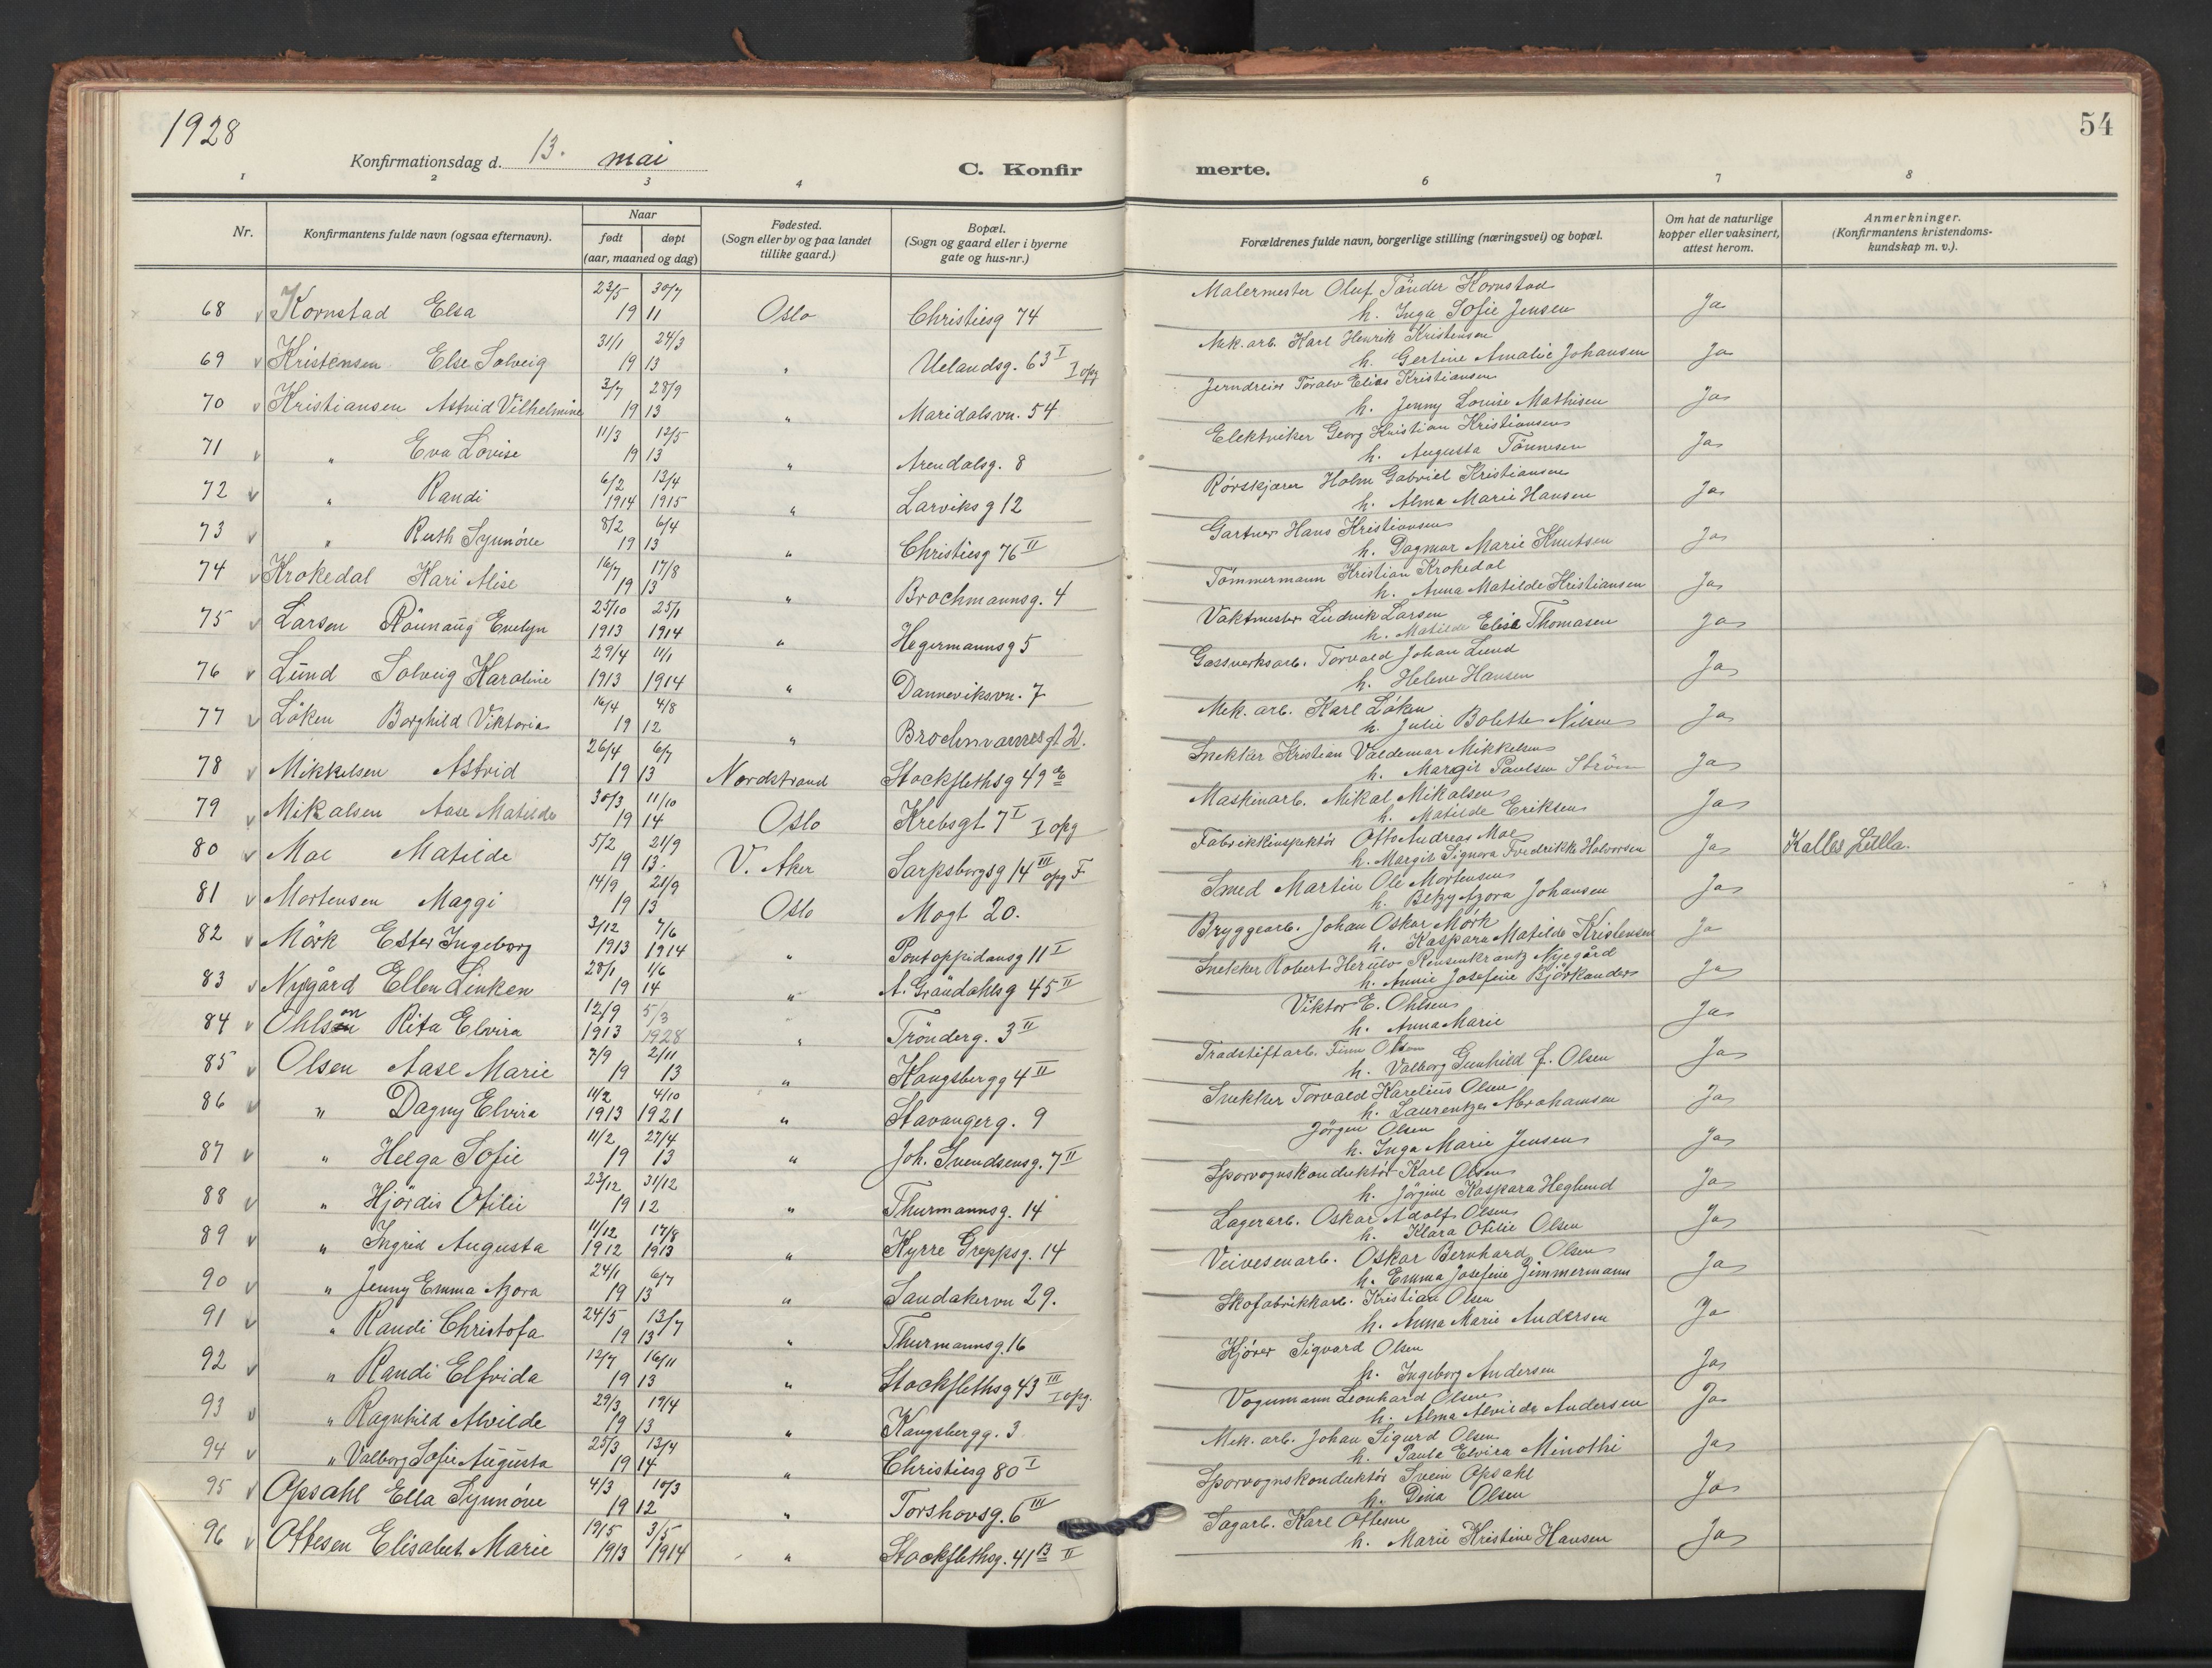 1928
54
Konfirmationsdag d. 13. mai
C. Konfir merte.
1 2 3 4 6 7 8
Nr.
Konfirmantens fulde navn (ogsaa efternavn).
Naar
født døpt
(aar, maaned og dag)
Fødested.
(Sogn eller by og paa landet
tillike gaard.)
Bopæl.
(Sogn og gaard eller i byerne
gate og hus-nr.)
Forældrenes fulde navn, borgerlige stilling (næringsvei) og bopæl.
Om hat de naturlige
kopper eller vaksinert,
attest herom.
Anmerkninger.
(Konfirmantens kristendoms-
kundskap m. v.).
68 Kornstad Elsa 23/5 30/7 1911 Oslo Christiesg 74 Malermester Oluf Tönder Kornstad
h. Inga Sofie Jensen Ja
69 Kristensen Else Solveig 31/1 24/3 1913 " Uelandsg. 63 I I opg Mek. arb. Karl Henrik Kristensen
h. Gertine Amalie Johansen Ja
70 Kristiansen Astrid Vilhelmine 3/7 28/9 1913 " Maridalsvn. 54 Jerndreier Toralv Elias Kristiansen
h. Jenny Lovise Mathisen Ja
71 " Eva Lovise 11/3 12/5 1913 " Arendalsg. 8 Elektriker Georg Kristian Kristiansen
h. Augusta Tönnesen Ja
72 " Randi 6/2 1914 13/4 1915 " Larviksg 12 Rørskjærer Holm Gabriel Kristiansen
h. Alma Marie Hansen Ja
73 " Ruth Synnöve 8/2 6/4 1913 " Christiesg 76 II Gartner Hans Kristiansen
h. Dagmar Marie Knutsen Ja
74 Krokedal Kari Alise 16/7 17/8 1913 " Brochmannsg. 4 Tömmermann Kristian Krokedal
h. Anna Matilde Kristiansen Ja
75 Larsen Rönnaug Evelyn 25/10 1913 25/1 1914 " Hegermannsg 5 Vaktmester Ludvik Larsen
h. Matilde Elise Thomasen Ja
76 Lund Solveig Karoline 29/4 1913 11/1 1914 " Danneviksvn. 7 Gassverksarb. Torvald Johan Lund
h. Helene Hansen Ja
77 Löken Borghild Viktoria 16/4 4/8 1912 " Brochmannsgt 2. Mek. arb. Karl Løken
h. Julie Bolette Nilsen Ja
78 Mikkelsen Astrid 26/4 6/7 1913 Nordstrand Stockflethsg 49 Snekker Kristian Valdemar Mikkelsen
h. Margit Paulsen Ström Ja
79 Mikalsen Aase Matilde 30/3 11/10 1914 Oslo Krebsgt 7 I I opg Maskinarb. Mikal Mikalsen
h. Matilde Eriksen Ja
80 Moe Matilde 5/2 21/9 1913. V. Aker Sarpsborgsg 14 III opg F Fabrikkinspektör Otto Andreas Moe
h. Margit Signora Fredrikke Halvorsen Ja Kalles Lilla.
81 Mortensen Maggi 14/9 21/9 1913 Oslo Mogt 20. Smed Martin Ole Mortensen
h. Betzy Azora Johansen Ja
82 Mörk Ester Ingeborg 3/12 1913 7/6 1914 " Pontoppidansg 11 I Bryggearb. Johan Oskar Mörk
h. Kaspara Matilde Kristensen Ja
83 Nygård Ellen Linken 28/1 1/6 1914 " A. Gröndahlsg 45 II Snekker Robert Herulv Rensenkrantz Nygård
h. Annie Josefine Björkander Ja
84 Ohlson Rita Elvira 12/9 1913 5/3 1928 " Trönderg. 3 II Viktor E. Ohlsen
h. Anna Marie Ja
85 Olsen Aase Marie 7/9 2/11 1913 " Kongsbergg 4 II Traadstiftarb. Finn Olsen
h. Valborg Gunhild f. Olsen Ja
86 " Dagny Elvira 11/2 1913 4/10 1921 " Stavangerg. 9 Snekker Torvald Karelius Olsen
h. Laurentze Abrahamsen Ja
87 " Helga Sofie 11/2 27/4 1913 " Joh. Svendsensg. 7 II Jörgen Olsen
h. Inga Marie Jensen Ja
88 " Hjördis Otilie 23/12 31/12 1912 " Thurmannsg. 14 Sporvognskonduktör Karl Olsen
h. Jörgine Kaspara Heglund Ja
89 " Ingrid Augusta 11/12 1912 17/8 1913 " Kyrre Greppsg. 14 Lagerarb. Oskar Adolf Olsen
h. Klara Otilie Olsen Ja
90 " Jenny Emma Azora 24/1 6/7 1913 " Sandakervn 29. Veivesenarb. Oskar Bernhard Olsen
h. Emma Josefine Zimmermann Ja
91 " Randi Christofa 24/5 13/7 1913 " Thurmannsg. 16 Skofabrikkarb. Kristian Olsen
h. Anna Marie Andersen Ja
92 " Randi Elfrida 12/7 16/11 1913 " Stockflethsg 43 III I opg. Kjører Sigvard Olsen
h. Ingeborg Andersen Ja
93 " Ragnhild Alvilde 29/3 19/4 1913 " Kongsbergg. 3 Vognmann Leonhard Olsen
h. Alma Alvilde Andersen Ja
94 " Valborg Sofie Augusta 25/3 13/4 1914 " Christiesg 80 I Mek. arb. Johan Sigurd Olsen
h. Paula Elvira Minothi Ja
95 Opsahl Ella Synnöve 4/3 10/3 1912 " Torshovsg. 6 III Sporvognskonduktör Svein Opsahl
h. Dina Olsen Ja
96 Ottesen Elisabet Marie 19/5 1913 3/5 1914 " Stockflethsg. 41 B II Sagarb. Karl Ottesen
h. Marie Kristine Hansen Ja